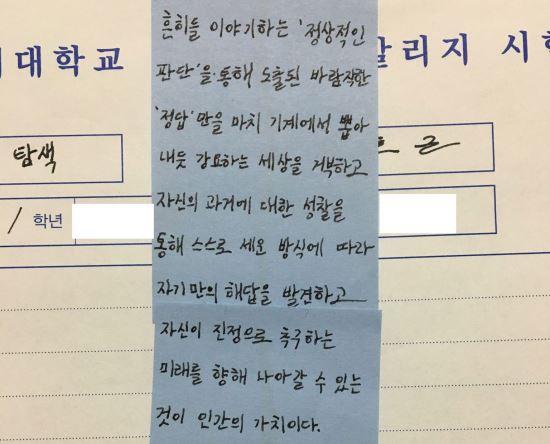 흔히들 이야기하는 '정상적인
대학교
판단'을 통해 도출된 바람직한
칼리지 시험
'정답'만을 마치 기계에서 뽑아
탐색
내듯 강요하는 세상을 거부하고
자신의 과거에 대한 성찰을
1 학년
통해 스스로 세운 방식에 따라
자기만의 해답을 발견하고
자신이 진정으로 촉구하는
미래를 향해 나아갈 수 있는
것이 인간의 가치이다.